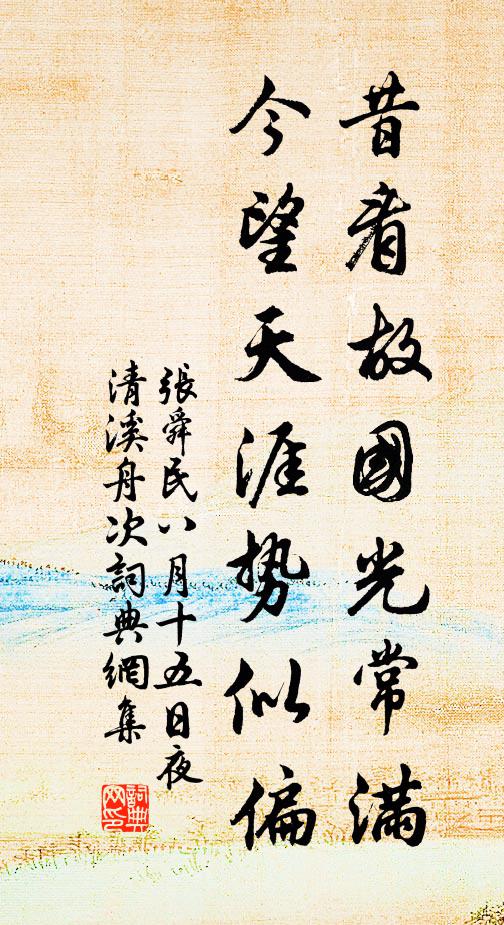 昔看故國光常滿
今望天涯势似偏
張舜民八月十五日夜
清溪舟次詞典網集
詞典
网印